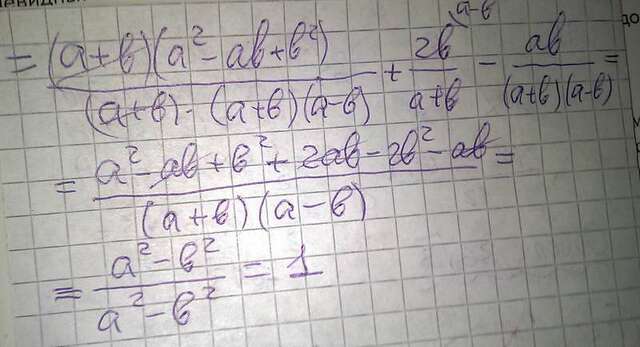 = (a+b)(a² - ab + b²) / (a+b) · (a+b)(a-b) + 2b / a+b \ a-b - ab / (a+b)(a-b) =
= a² - ab + b² + 2ab - 2b² - ab / (a+b)(a-b) =
= a² - b² / a² - b² = 1